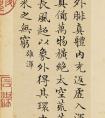 外腓真體內充返虛入渾
具備萬物橫絕太空荒
長風超以象外得其環
來之無窮 雄渾